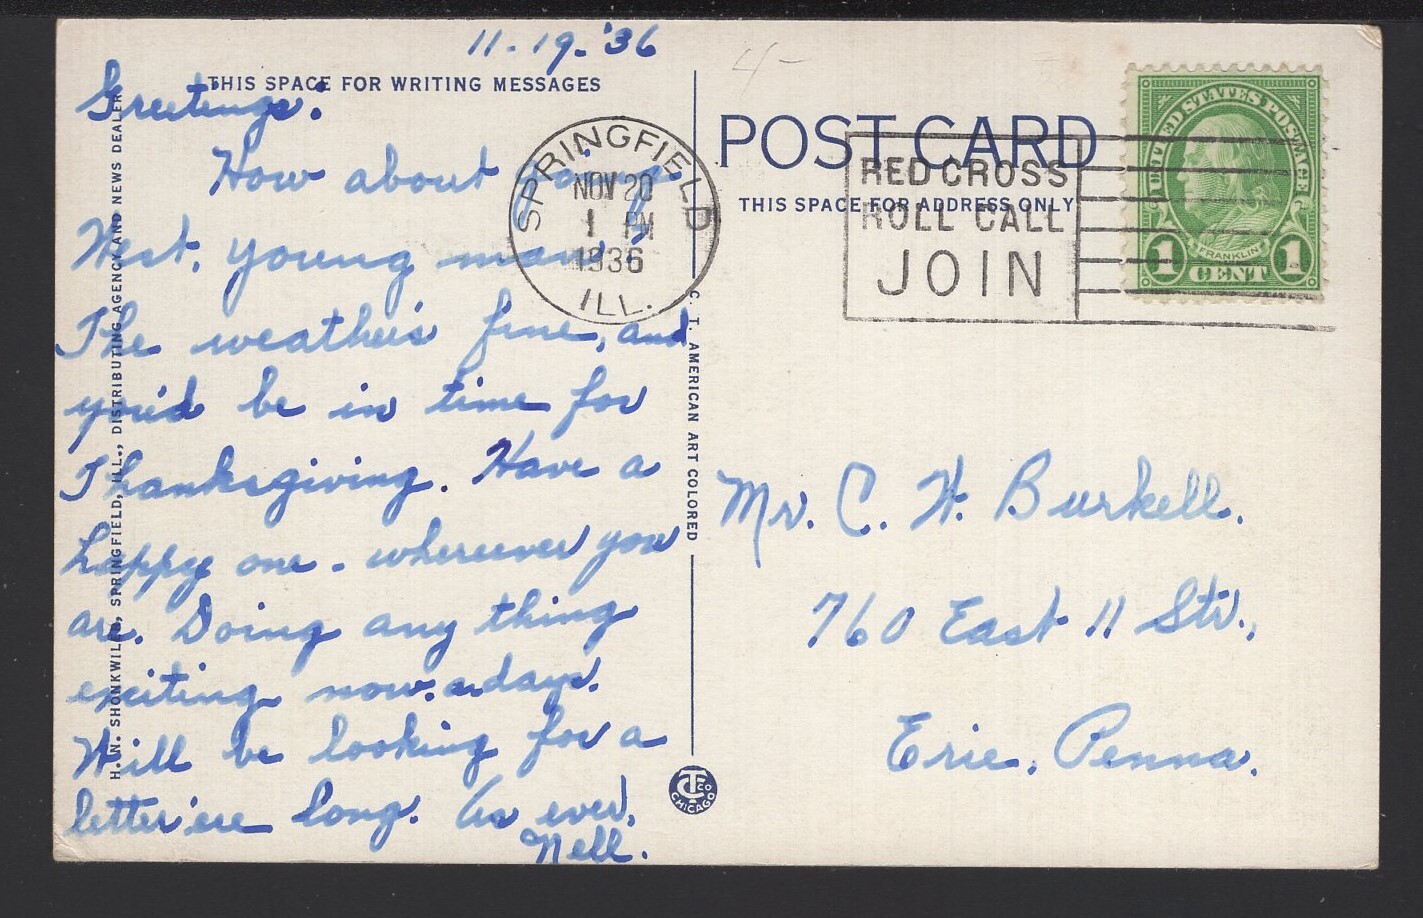 11-19-'36
THIS SPACE FOR WRITING MESSAGES
Greetings:
How about going
West, young man?
The weather's fine, and
you'd be in time for
Thanksgiving. Have a
happy one - wherever you
are. Doing any thing
exciting now-a-days.
Will be looking for a
letter 'ere long. As ever,
Nell.
H. N. SHONKWILER, SPRINGFIELD, ILL., DISTRIBUTING AGENCY AND NEWS DEALER
SPRINGFIELD
NOV 20
1 PM
1936
ILL.
C. T. AMERICAN ART COLORED
CT CO
CHICAGO
4-
POST CARD
THIS SPACE FOR ADDRESS ONLY
RED CROSS
ROLL CALL
JOIN
UNITED STATES POSTAGE
FRANKLIN
1 CENT 1
Mr. C. W. Burkell.
760 East 11 Str.,
Erie, Penna.